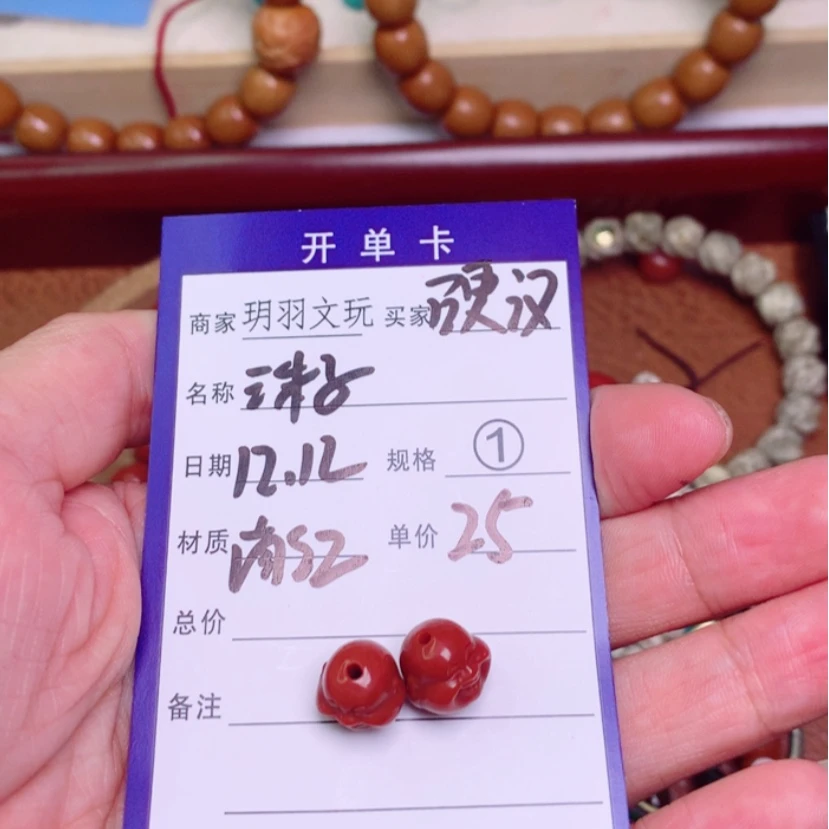 开单卡
商家 玥羽文玩 买家 硬汉
名称 珠子
日期 12.12 规格 ①
材质 南红 单价 25
总价
备注